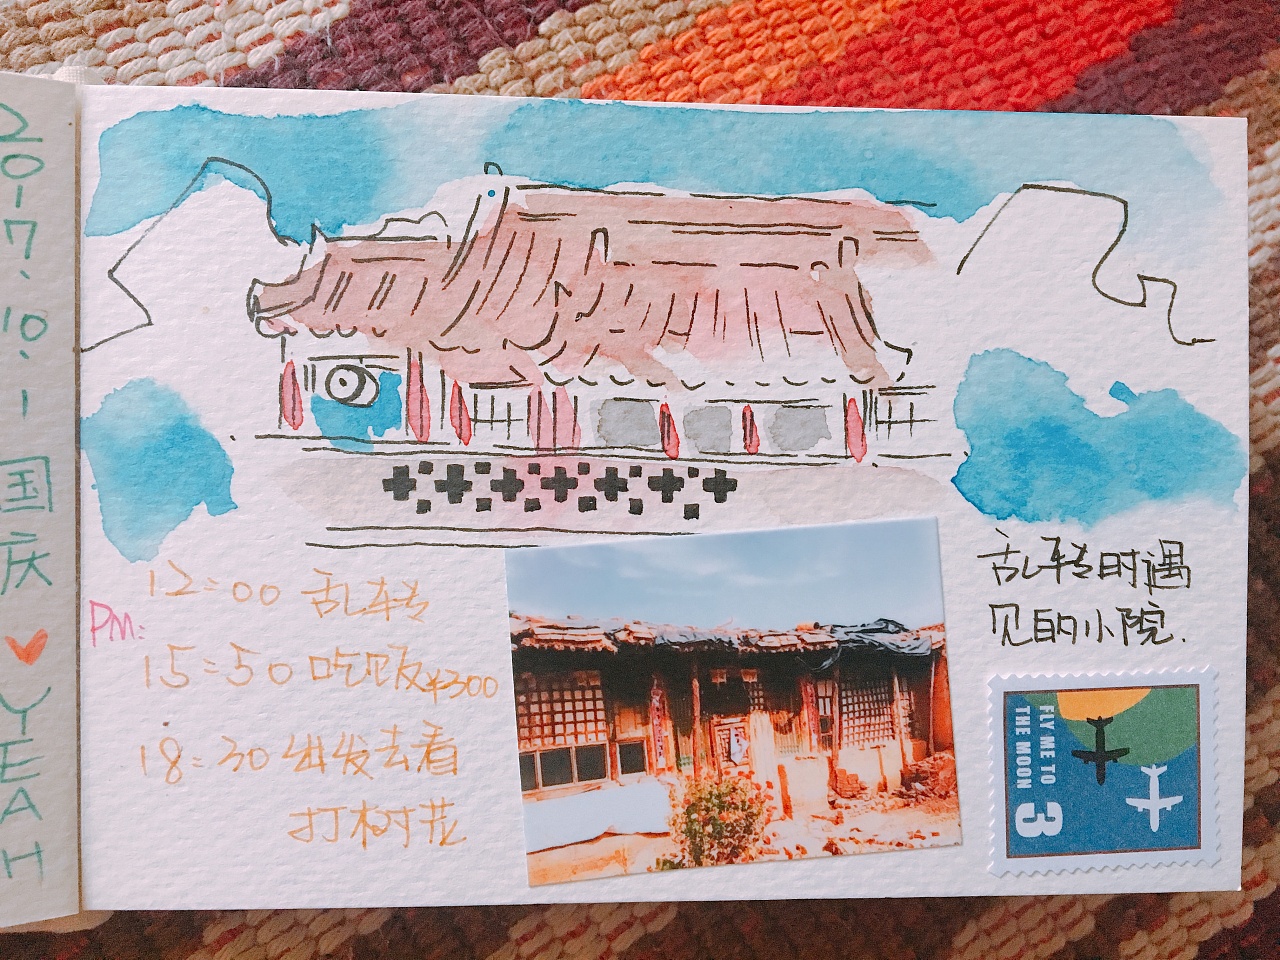 2017.10.1 国庆 YEAH
PM:
12:00 乱转
15:50 吃饭¥300
18:30 出发去看
打树花
乱转时遇
见的小院.
FLY ME TO
THE MOON
3